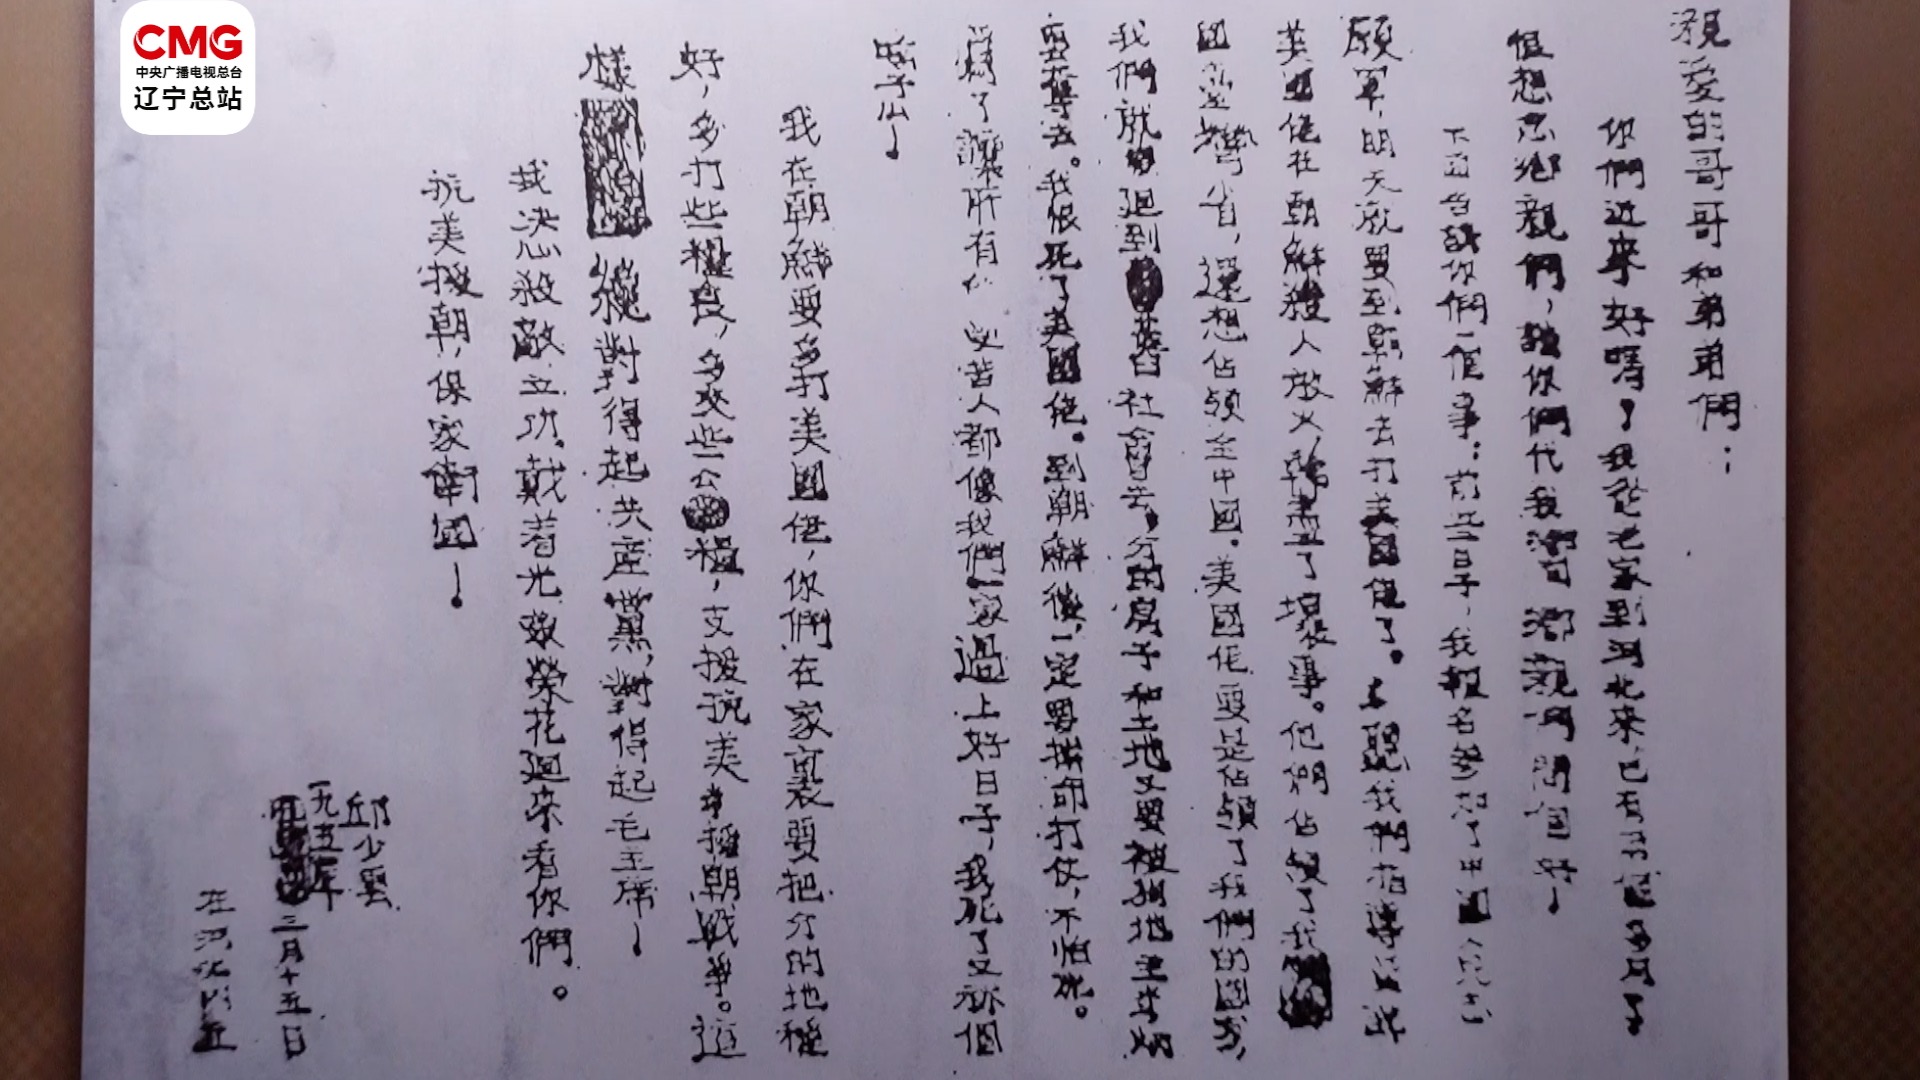 CMG
中央广播电视总台
辽宁总站
親爱的哥哥和弟弟們：
你們近来好嗎！我從老家到河北来已有多月了
很想念鄉親們，請你們代我向鄉親們問個好！
下面告訴你們一個事：前些日子，我報名參加了中國人民志
願軍，明天就要到朝鮮去打美國佬了。聽我們指導員說
美國佬在朝鮮殺人放火，幹盡了壞事。他們佔領了我
國臺灣省，還想佔領全中國。美國佬要是佔領了我們的國家，
我們就要廻到舊社會去，分的房子和土地又要被狗地主
要奪去。我恨死了美國佬。到朝鮮後，一定要拼命打仗，不怕死。
爲了讓所有的苦人都像我們一家過上好日子，我死了又祘個
啥子么！
我在朝鮮要多打美國佬，你們在家裏要把分的地種
好，多打些糧食，多交些公糧，支援抗美援朝戰爭。這
樣才能對得起共産黨，對得起毛主席！
我决心殺敵立功，戴着光荣花廻来看你們。
抗美援朝，保家衛國！
邱少雲
一九五一年三月十五日
在河北内丘